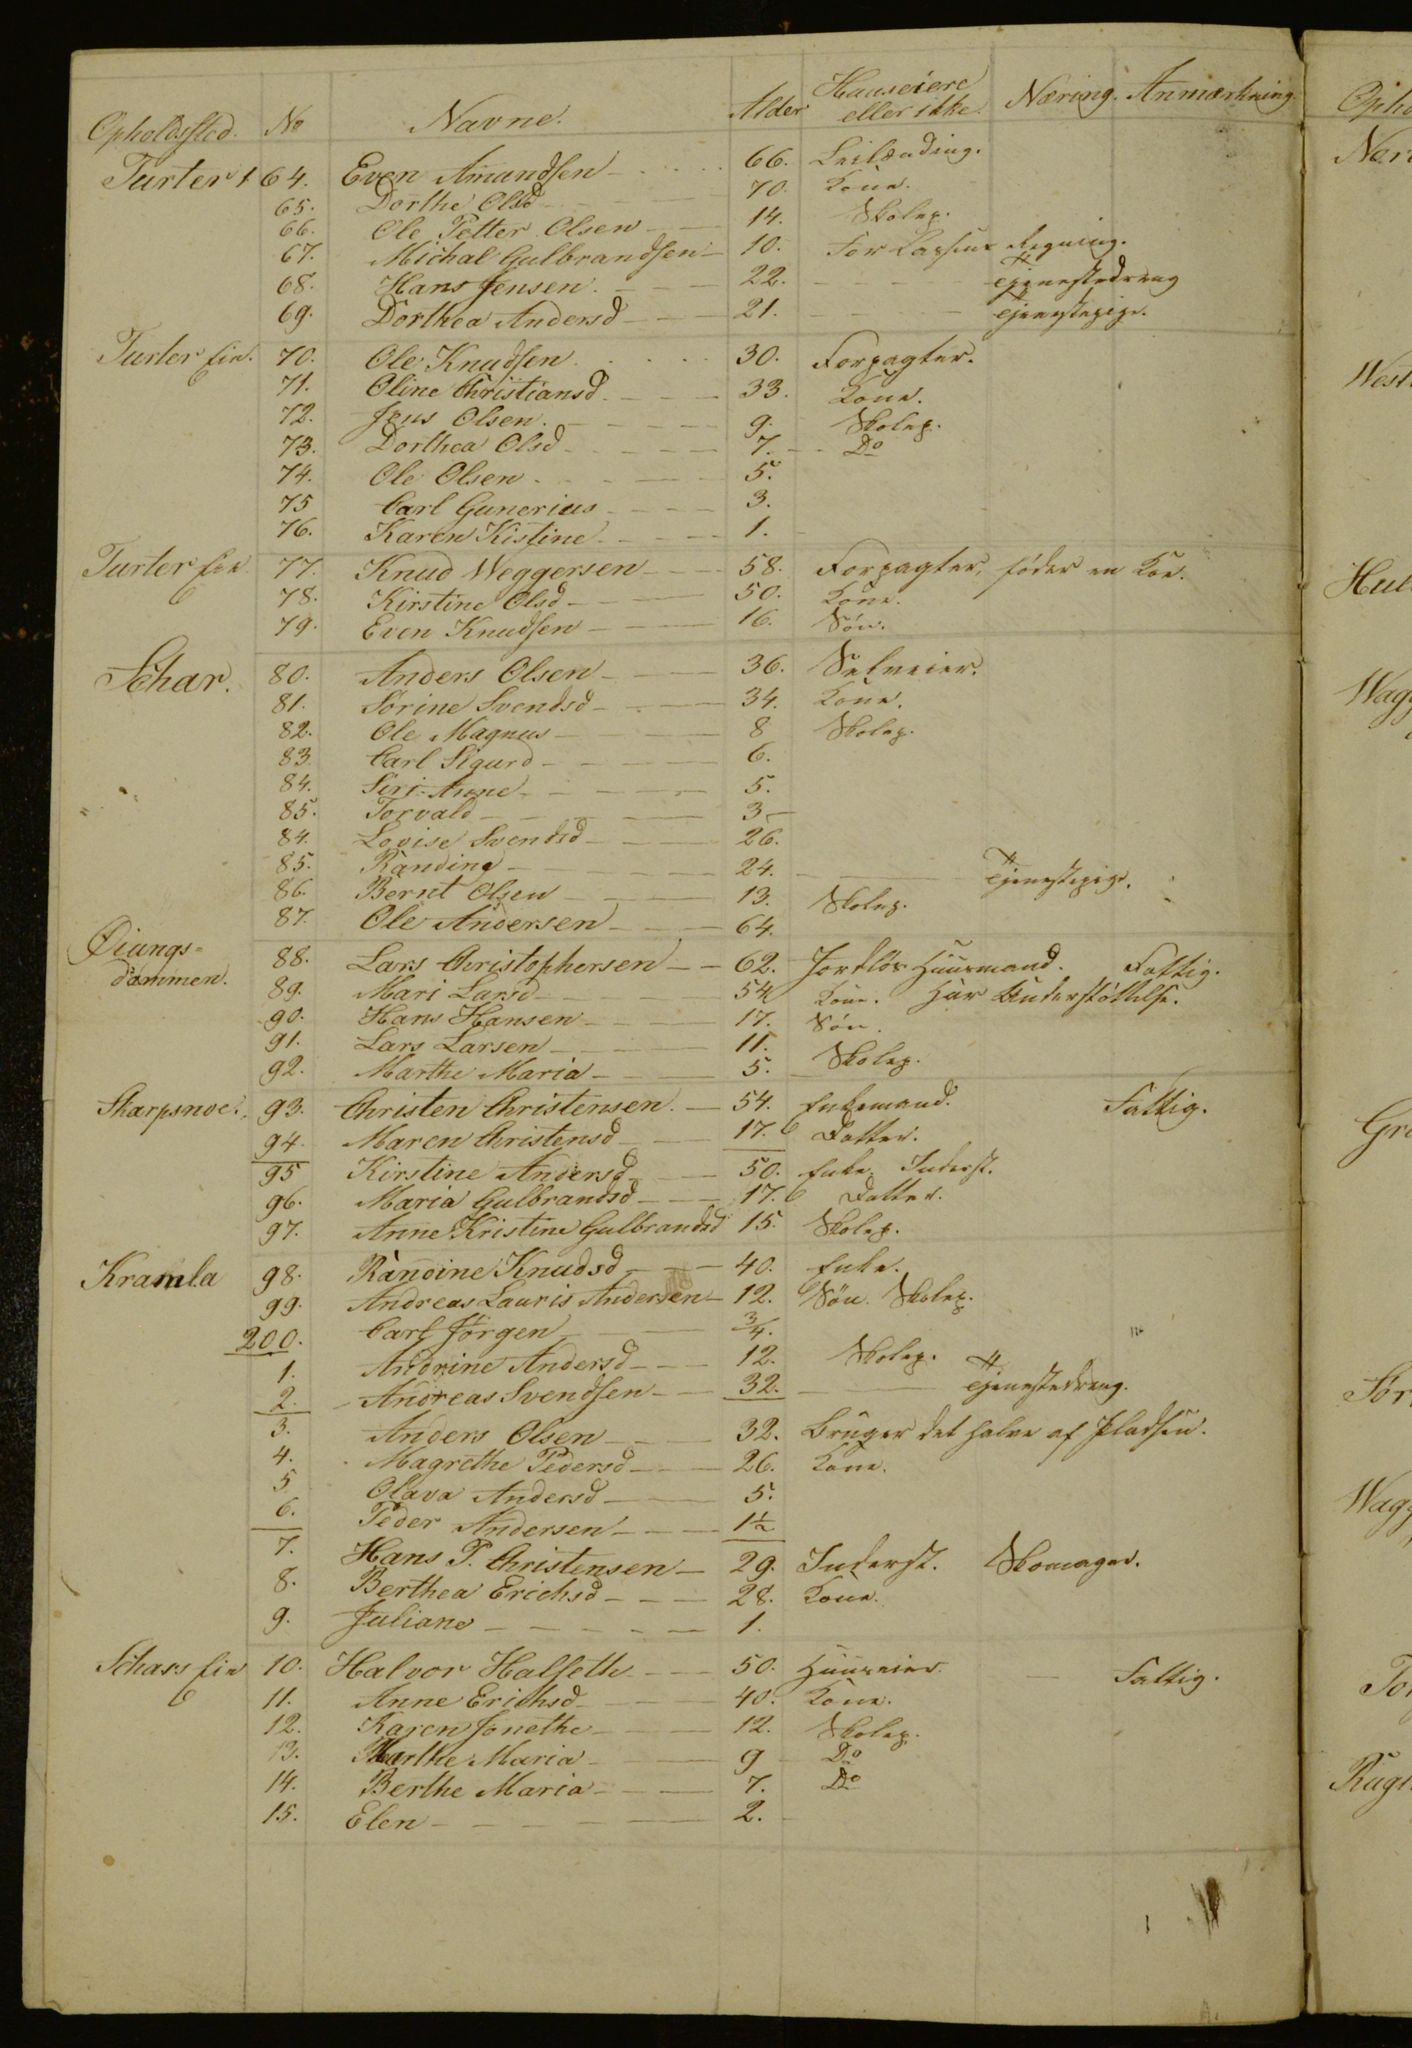 Opholdssted. No Navne. Alder Huuseiere eller ikke. Næring. Anmærkning
Turter 1 64. Even Amandsen 66. Leilænding.
65. Dorthe Olsd 70. Kone.
66. Ole Petter Olsen 14. Skolep.
67. Michal Gulbrandsen 10. For Regning.
68. Hans Jensen. 22. Tjenestedreng
69. Dorthea Andersd 21. Tjenestepige.
Turter Eie. 70. Ole Knudsen 30. Forpagter.
71. Oline Christiansd. 33. Kone.
72. Jens Olsen. 9. Skolep.
73. Dorthea Olsd 7. Do
74. Ole Olsen 5.
75 Carl Gunerius 3.
76. Karen Kistine 1.
Turter Eie 77. Knud Weggersen 58. Forpagter, føder en Koe.
78. Kirstine Olsd 50. Kone.
79. Even Knudsen 16. Søn.
Schar. 80. Anders Olsen 36. Selveier.
81. Sørine Svendsd 34. Kone.
82. Ole Magnus 8 Skolep.
83. Carl Sigurd 6.
84. Siri Anne 5.
85. Torvald 3
84. Lovise Svendsd 26.
85. Randine 24. Tjenestepige.
86. Bernt Olsen 13. Skolep.
87. Ole Andersen 64.
Øiangs= 88. Lars Christophersen 62. Jordløs Huusmand. Fattig.
dammen. 89. Mari Larsd 54 Kone. Har Understøttelse.
90. Hans Hansen 17. Søn.
91. Lars Larsen 11. Skolep.
92. Marthe Maria 5.
Skarpsnoe. 93. Christen Christensen. 54. Enkemand. Fattig.
94. Maren Christensd 17. Datter.
95 Kirstine Andersd 50. Enke. Inderst.
96. Maria Gulbrandsd 17. Datter.
97. Anne Kristine Gulbrandsd 15. Skolep.
Kramla 98. Randine Knudsd 40. Enke.
99. Andreas Lauris Andersen 12. Søn. Skolep.
200. Carl Jörgen 3/4.
1. Andrine Andersd 12. Skolep.
2. Andreas Svendsen 32. Tjenestedreng.
3. Anders Olsen 32. Bruger det halve af Pladsen.
4. Magrethe Pedersd 26. Kone.
5 Olava Andersd 5.
6. Peder Andersen 1½
7. Hans P. Christensen 29. Inderst. Skomager.
8. Berthea Erichsd 28. Kone.
9. Juliane 1.
Schars Eie 10. Halvor Halseth 50. Huuseier. Fattig.
11. Anne Erichsd 40. Kone.
12. Karen Jonethe 12. Skolep.
13. Marthe Maria 9 Do
14. Berthe Maria 7. Do
15. Elen 2.